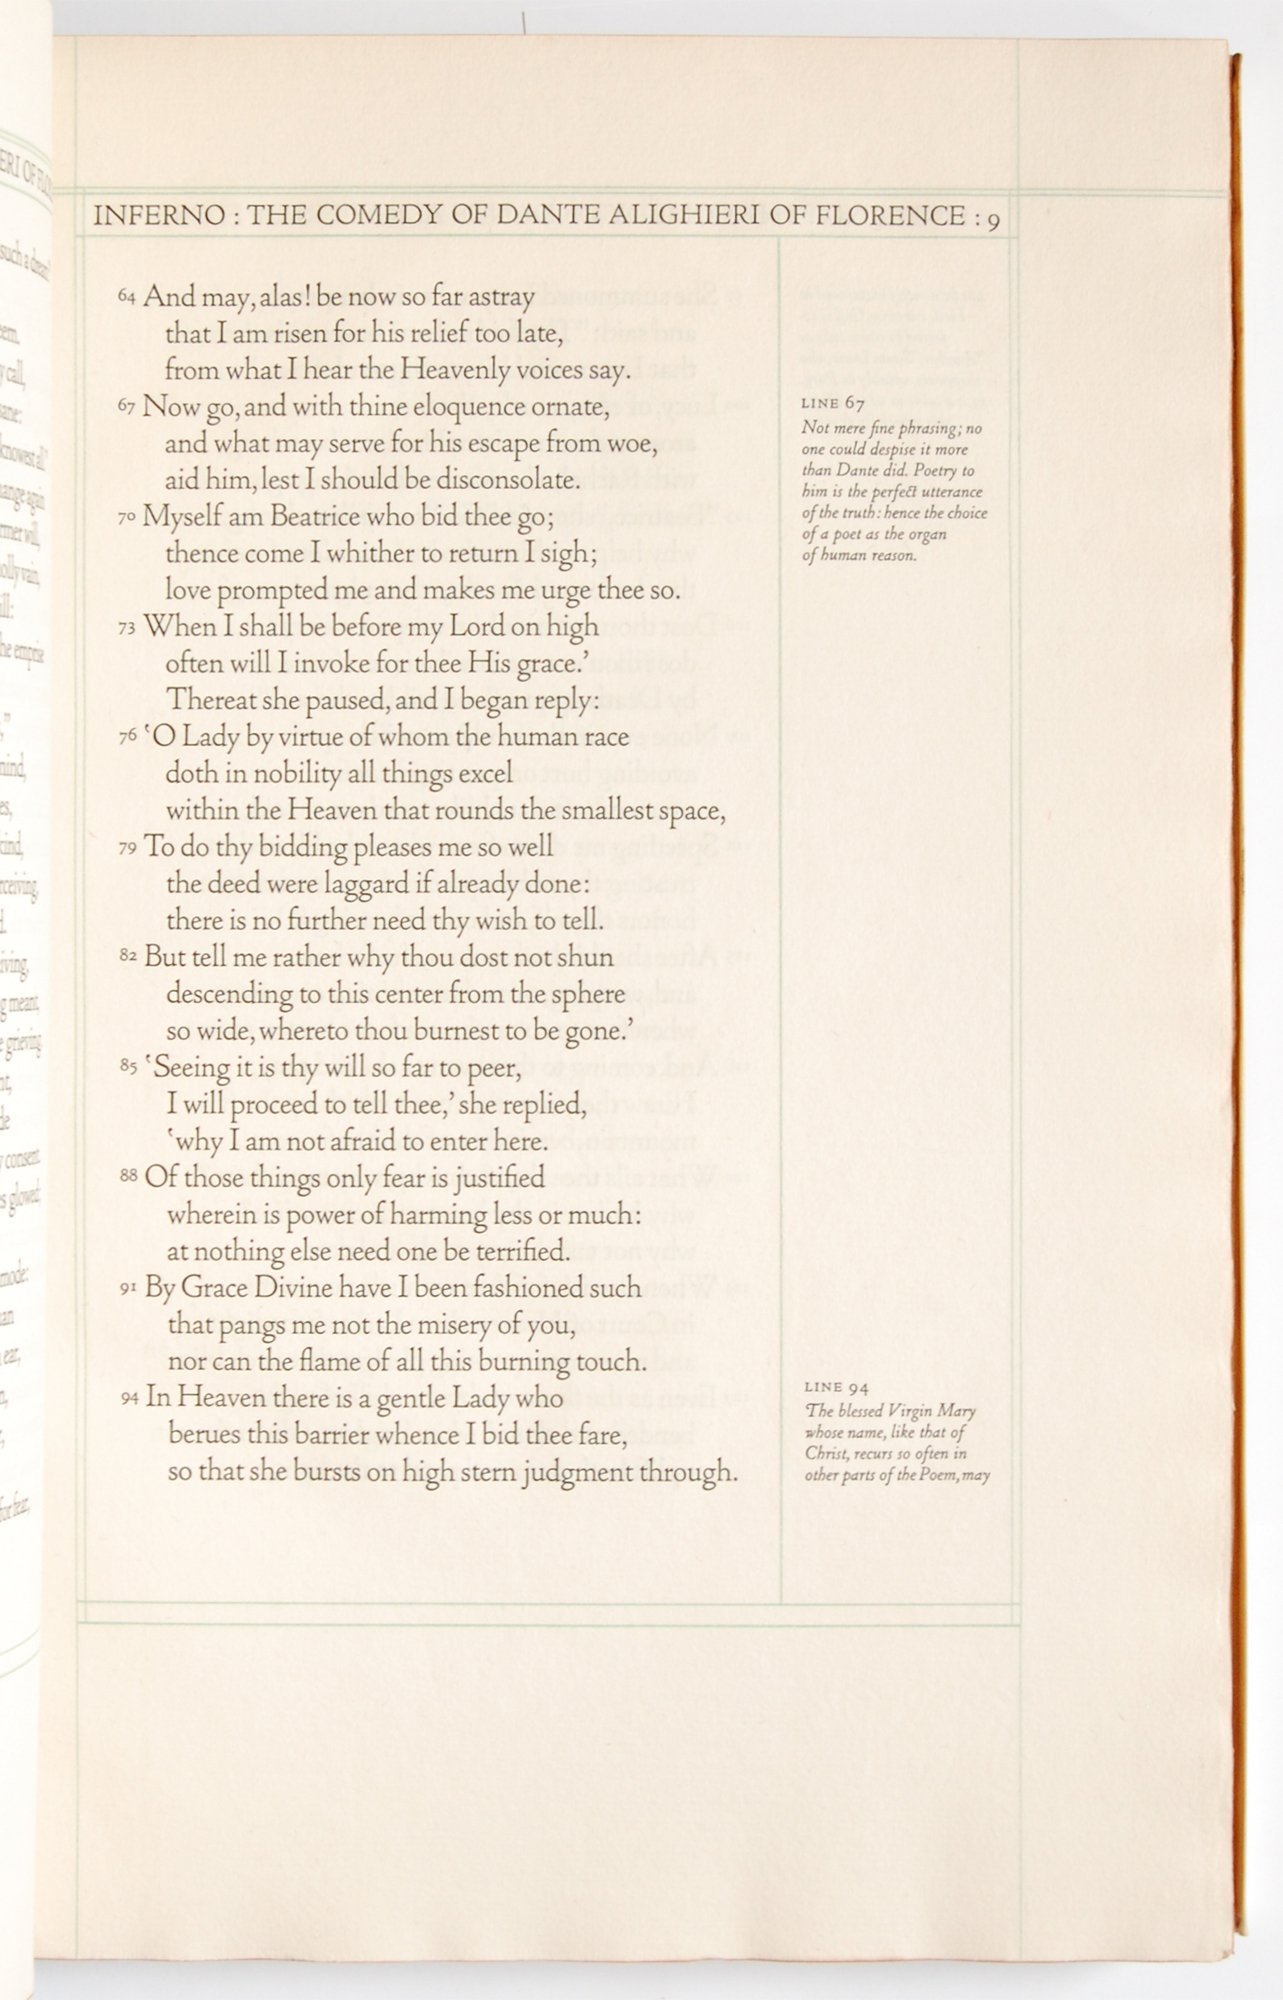 INFERNO : THE COMEDY OF DANTE ALIGHIERI OF FLORENCE : 9
64 And may, alas! be now so far astray
that I am risen for his relief too late,
from what I hear the Heavenly voices say.
67 Now go, and with thine eloquence ornate,
and what may serve for his escape from woe,
aid him, lest I should be disconsolate.
70 Myself am Beatrice who bid thee go;
thence come I whither to return I sigh;
love prompted me and makes me urge thee so.
73 When I shall be before my Lord on high
often will I invoke for thee His grace.’
Thereat she paused, and I began reply:
76 ‘O Lady by virtue of whom the human race
doth in nobility all things excel
within the Heaven that rounds the smallest space,
79 To do thy bidding pleases me so well
the deed were laggard if already done:
there is no further need thy wish to tell.
82 But tell me rather why thou dost not shun
descending to this center from the sphere
so wide, whereto thou burnest to be gone.’
85 ‘Seeing it is thy will so far to peer,
I will proceed to tell thee,’ she replied,
‘why I am not afraid to enter here.
88 Of those things only fear is justified
wherein is power of harming less or much:
at nothing else need one be terrified.
91 By Grace Divine have I been fashioned such
that pangs me not the misery of you,
nor can the flame of all this burning touch.
94 In Heaven there is a gentle Lady who
berues this barrier whence I bid thee fare,
so that she bursts on high stern judgment through.
LINE 67
Not mere fine phrasing; no
one could despise it more
than Dante did. Poetry to
him is the perfect utterance
of the truth: hence the choice
of a poet as the organ
of human reason.
LINE 94
The blessed Virgin Mary
whose name, like that of
Christ, recurs so often in
other parts of the Poem, may